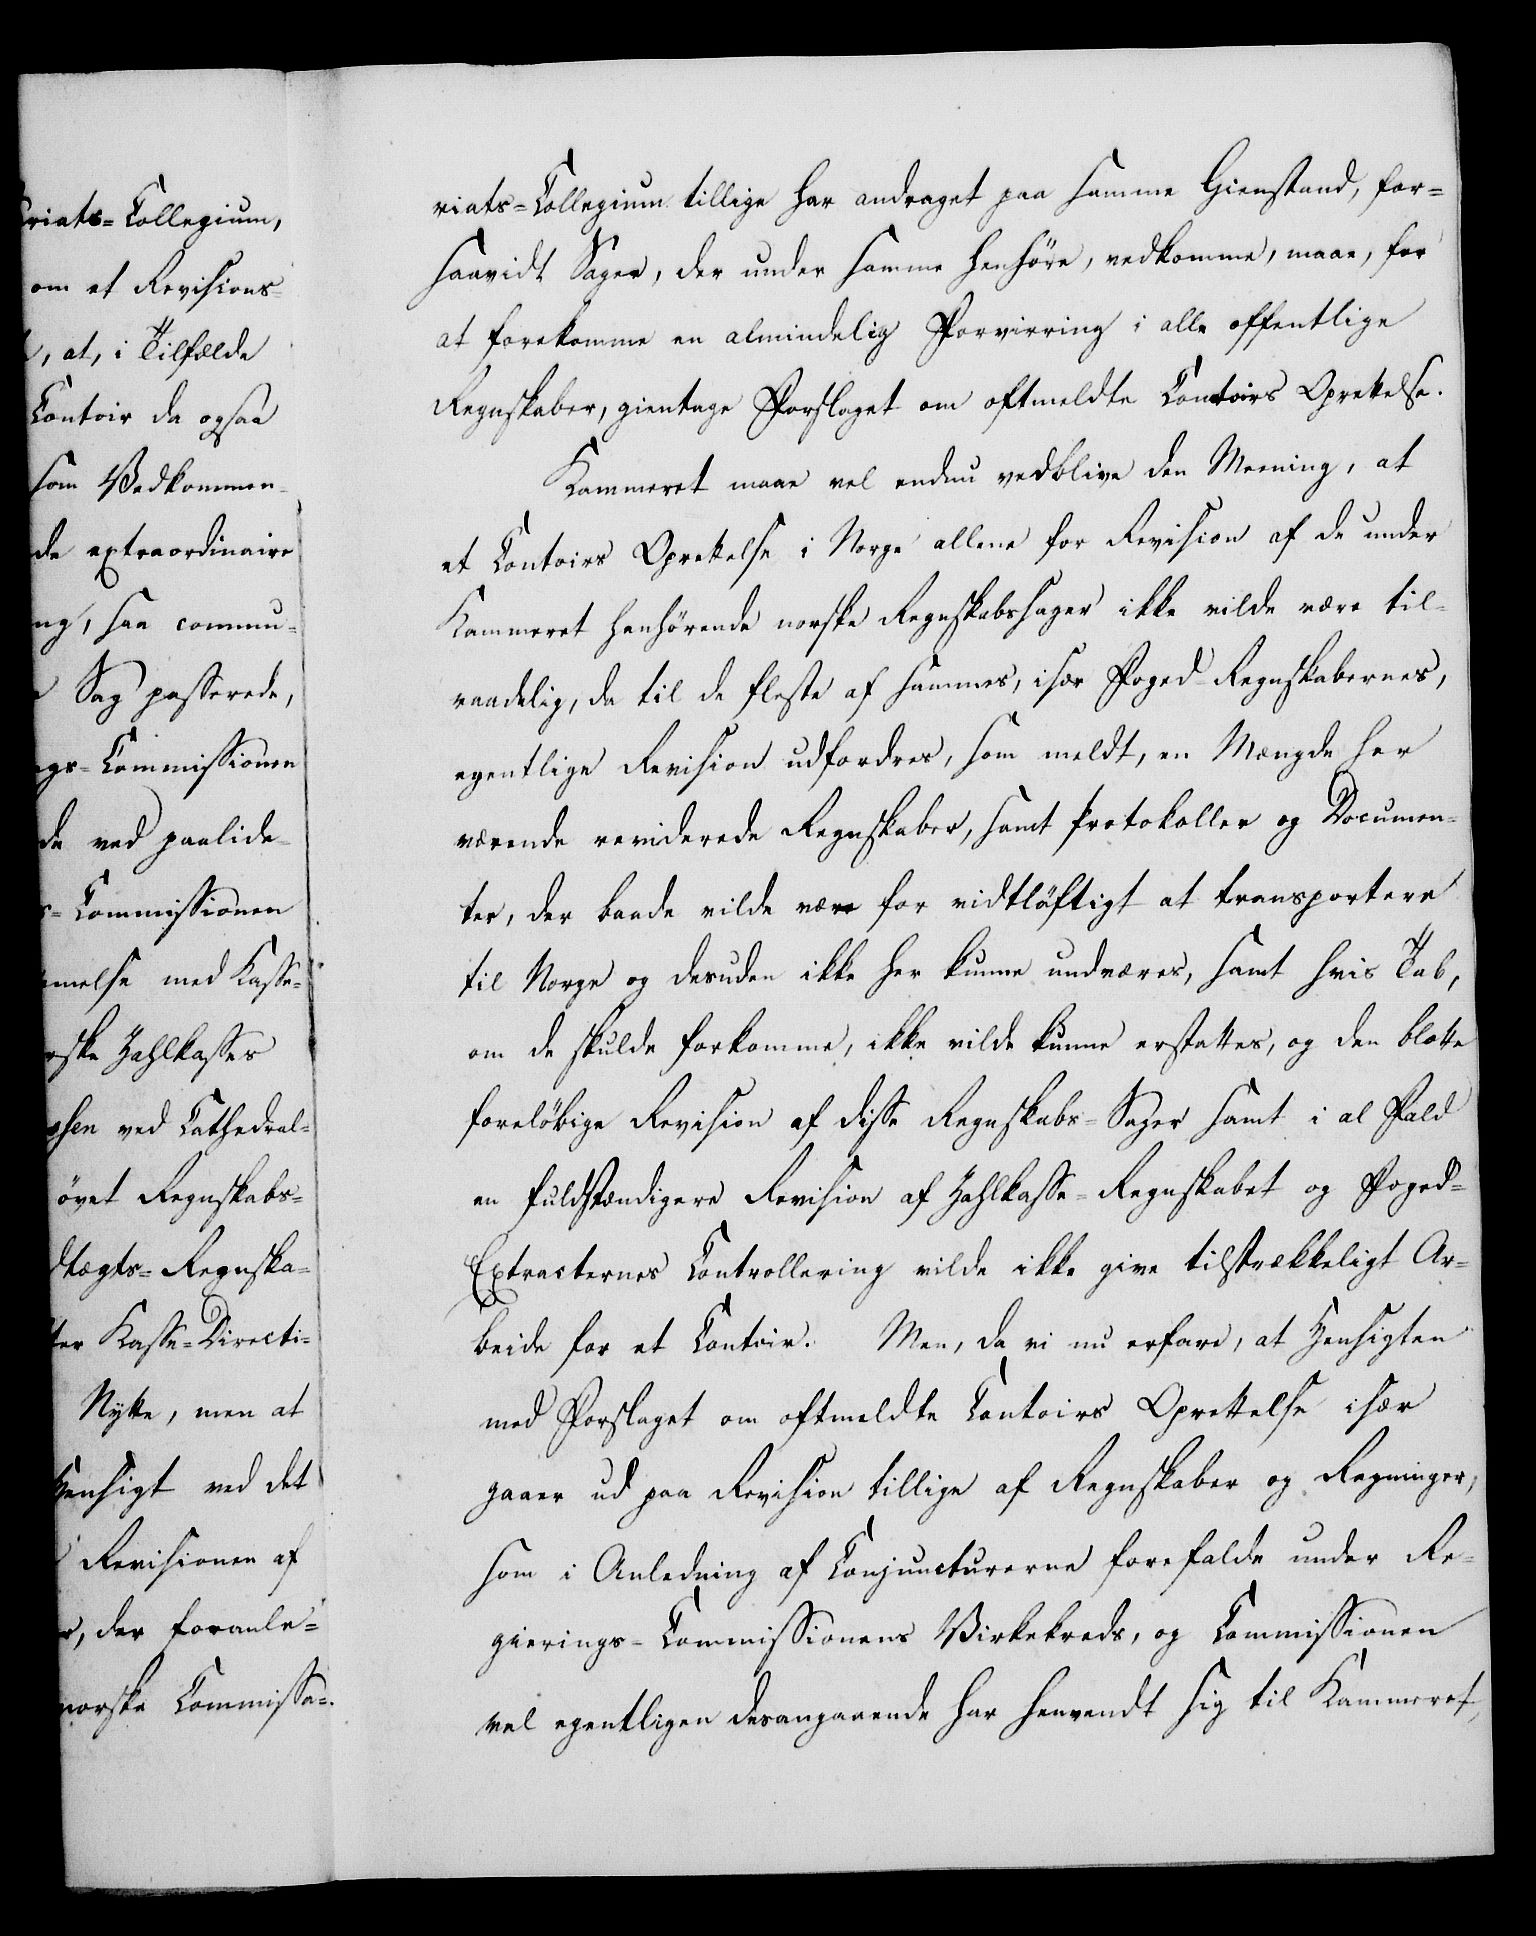 riats-Collegium,
om et Revisions-
, at, i Tilfælde
Contoir da ogsaa
som Vedkommen-
de extraordinaire
ng, saa commu-
Sag passerede,
ngs-Commissionen
de ved paalide-
s-Commissionen
mmelse med Kasse-
rske Zahlkasses
ved Cathedral-
övet Regnskabs-
dtægts-Regnska-
ter Kasse-Directi-
Nytte, men at
Hensigt ved det
Revisionen af
r, der foranle-
norske Commissa-
riats-Collegium tillige har andraget paa samme Gienstand, for-
saavidt Sager, der under samme henhöre, vedkomme, maae, for
at forekomme en almindelig Forvirring i alle offentlige
Regnskaber, gientage Forslaget om oftmeldte Contoirs Oprettelse.
Kammeret maae vel endnu vedblive den Meening, at
et Contoirs Oprettelse i Norge allene for Revision af de under
Kammeret henhörende norske Regnskabssager ikke vilde være til-
raadelig, da til de fleste af sammes, især Foged-Regnskabernes,
egentlige Revision udfordres, som meldt, en Mængde her
værende reviderede Regnskaber, samt Protokoller og Documen-
ter, der baade vilde være for vidtlöftigt at transportere
til Norge og desuden ikke her kunne undværes, samt hvis Tab,
om de skulde forkomme, ikke vilde kunne erstattes, og den blotte
forelöbige Revision af disse Regnskabs-Sager samt i al Fald
en fuldstændigere Revision af Zahlkasse-Regnskabet og Foged-
Extracternes Controllering vilde ikke give tilstrækkeligt Ar-
beide for et Contoir. Men, da vi nu erfare, at Hensigten
med Forslaget om oftmeldte Contoirs Oprettelse især
gaaer ud paa Revision tillige af Regnskaber og Regninger,
som i Anledning af Conjuncturerne forefalde under Re-
gierings-Commissionens Virkekreds, og Commissionen
vel egentligen desangaaende har henvendt sig til Kammeret,